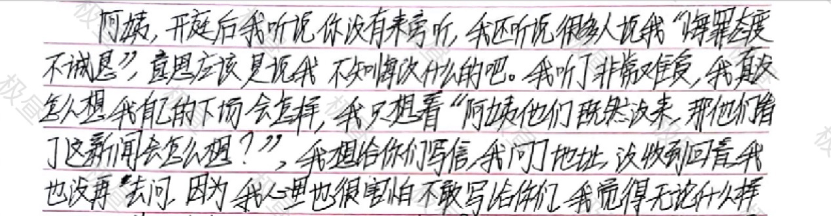 阿姨，开庭后我听说你没有来旁听，我还听说很多人说我“悔罪态度
不诚恳”，意思应该是说我不知悔改什么的吧。我听了非常难受，我真没
怎么想我自己的下场会怎样，我只想着“阿姨他们既然没来，那他们看
了这新闻会怎么想？”，我想给你们写信，我问了地址，没收到回音我
也没再去问，因为我心里也很害怕不敢写给你们，我觉得无论什么样